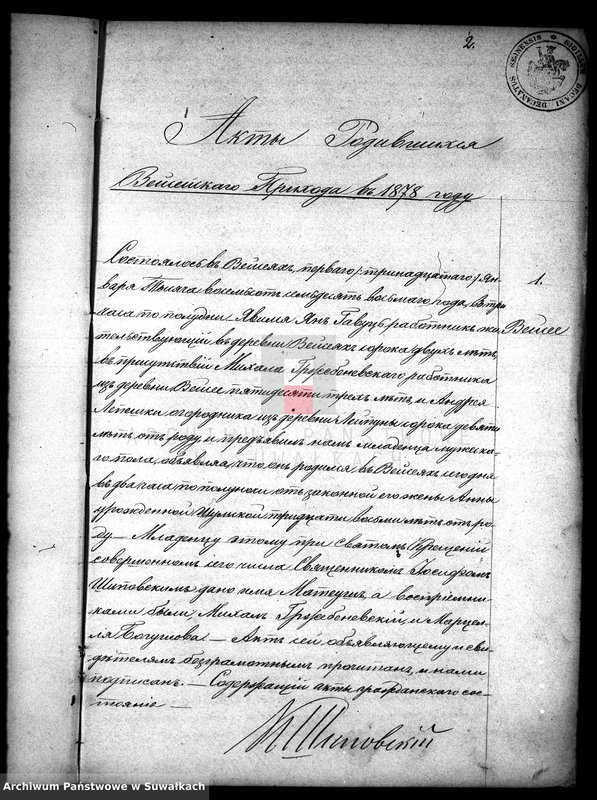 2.
SIGILLUM DECANI DECANATUS SEJNENSIS
Акты Родившихся
Вейсейскаго Прихода въ 1878 году
1.
Вейсее
Состоялось въ Вейсеяхъ, перваго /:тринадцатаго:/ Ян-
варя Тысяча восемьсотъ семьдесятъ восьмаго года, въ три
часа по полудни. Явился Янъ работникъ жи
тельствующій въ деревни Вейсеяхъ сорока двухъ лѣтъ,
въ присутствіи Михала Гржебеневскаго работника
изъ деревни Вейсее пятидесяти трехъ лѣтъ, и Андрея
Лепешки огородника изъ деревни Лейпунъ сорока девяти
лѣтъ отъ роду, и предъявилъ намъ младенца мужеска-
го пола, объявляя, что онъ родился въ Вейсеяхъ сего дня
въ два часа по полуночи отъ законной его жены Анны
урожденной Шумской тридцати восьми лѣтъ отъ ро-
ду. — Младенцу этому при Святомъ Крещеніи
совершенномъ сего числа Священникомъ Іосифомъ
Шиповскимъ дано имя Матеушъ, а воспріемни-
ками были Михалъ Гржебеневскій и Марцел-
ля Богушова. — Актъ сей объявляющему и сви-
дѣтелямъ безграмотнымъ прочитанъ, и нами
подписанъ. — Содержащій акты гражданскаго сос-
тоянія —
Шиповскій
ARCHIWUM PAŃSTWOWE
W SUWAŁKACH
Archiwum Państwowe w Suwałkach